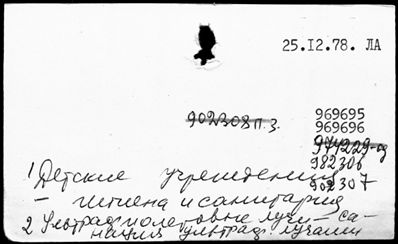 25.I2.78. ЛА
902308 п.3.
969695
969696
971229-од
982306
902307
1) Детские учреждения
- гигиена и санитария
2 Ультрафиолетовые лучи - са-
нация ультраф. лучами